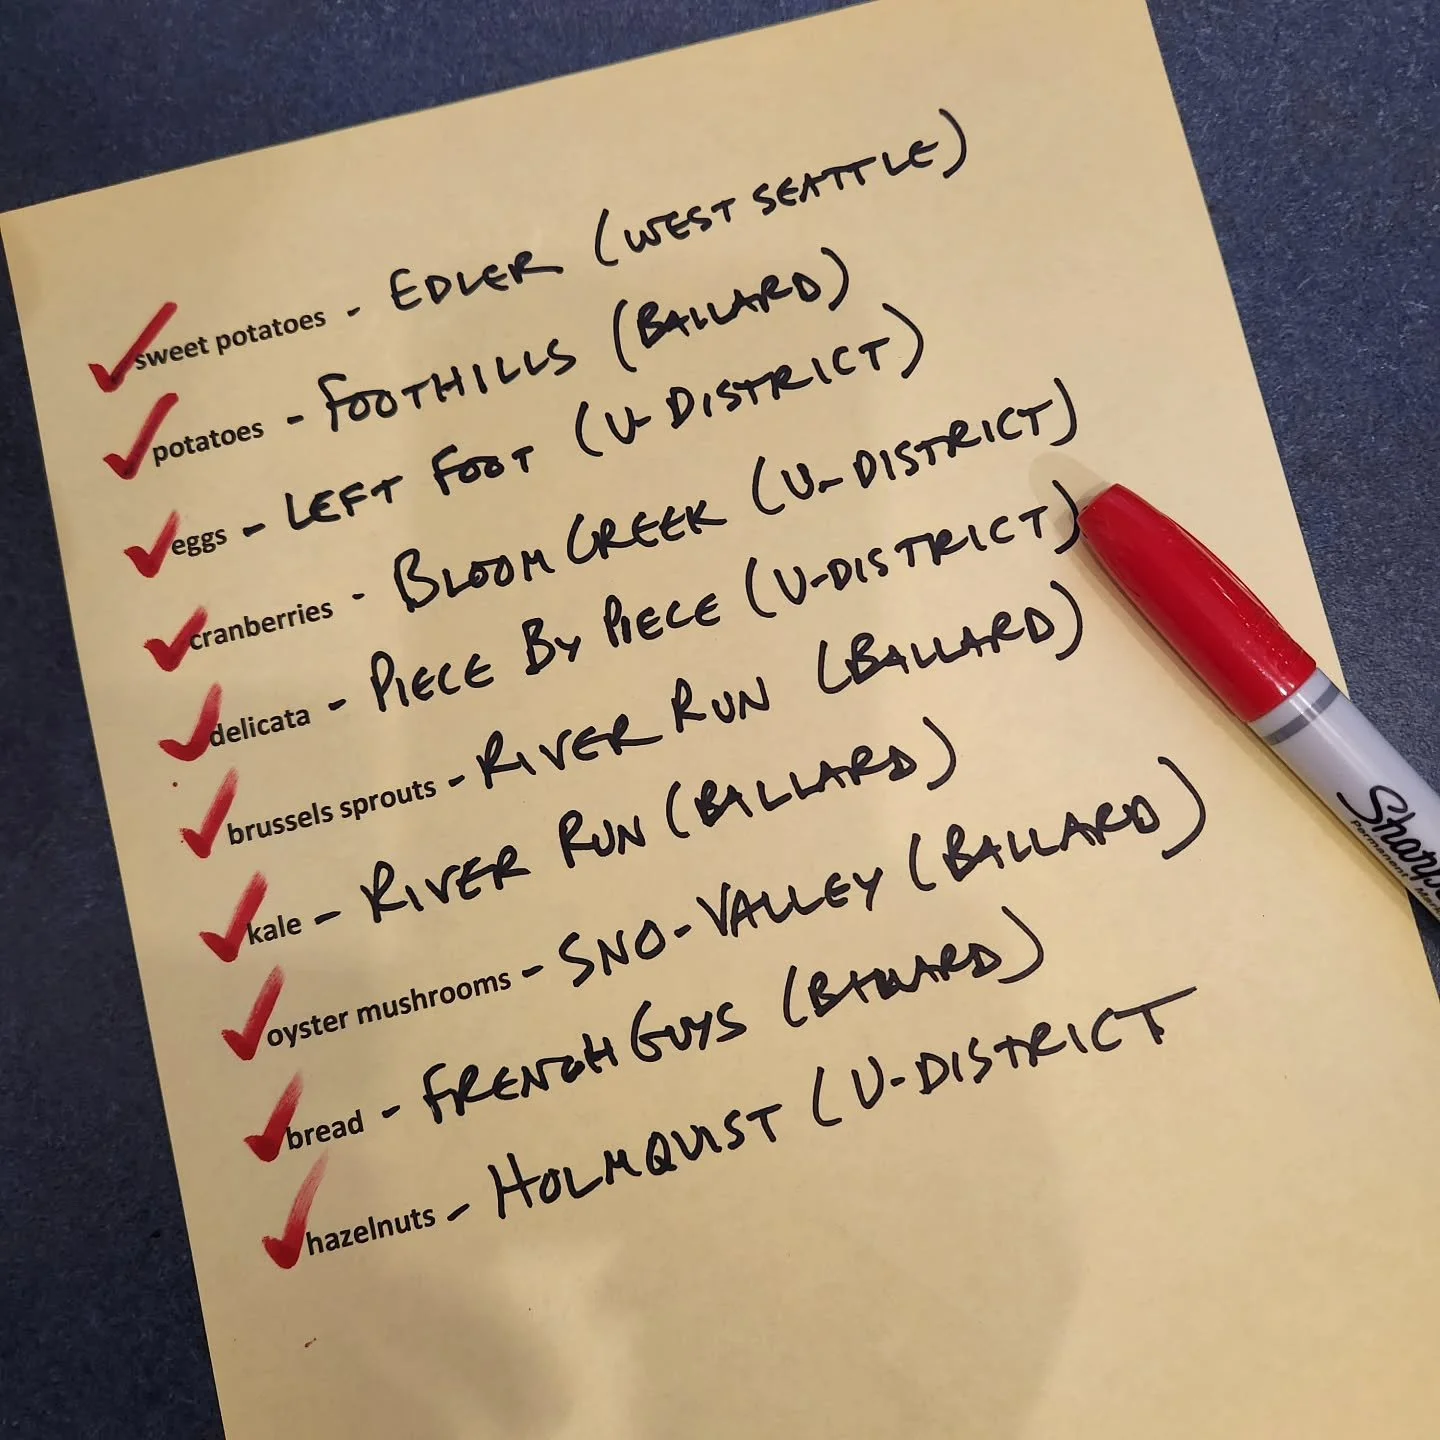 sweet potatoes - EDLER (WEST SEATTLE)
potatoes - FOOTHILLS (BALLARD)
eggs - LEFT FOOT (U-DISTRICT)
cranberries - BLOOM CREEK (U-DISTRICT)
delicata - PIECE BY PIECE (U-DISTRICT)
brussels sprouts - RIVER RUN (BALLARD)
kale - RIVER RUN (BALLARD)
oyster mushrooms - SNO-VALLEY (BALLARD)
bread - FRENCH GUYS (BALLARD)
hazelnuts - HOLMQUIST (U-DISTRICT
Sharpie
Permanent